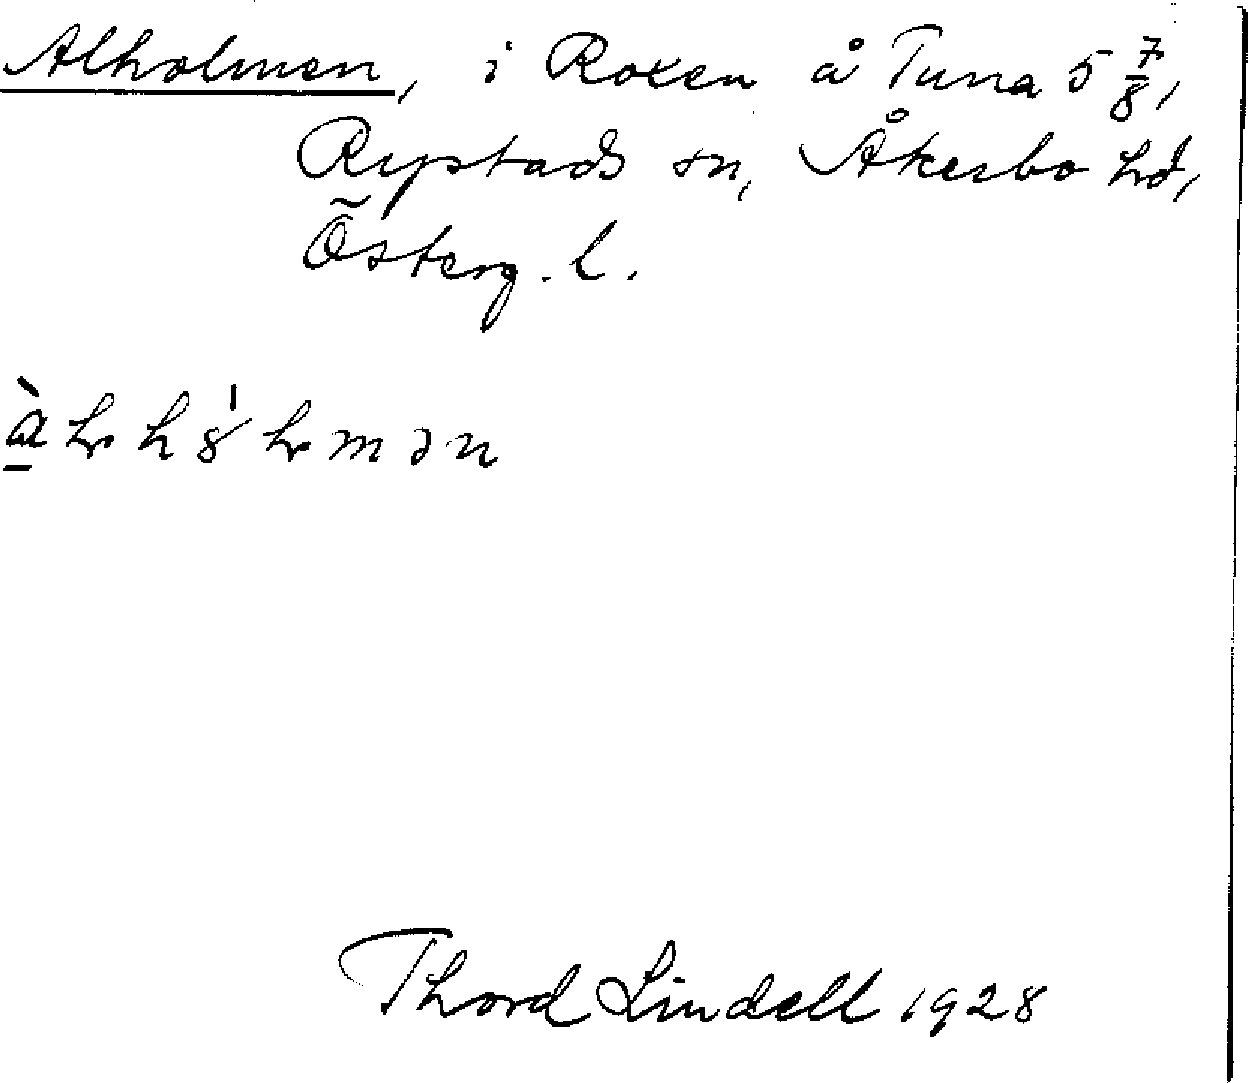 Alholmen, i Roxen å Tuna 5 7/8,
Rystads sn, Åkerbo hd,
Österg. l.
Thord Lindell 1928